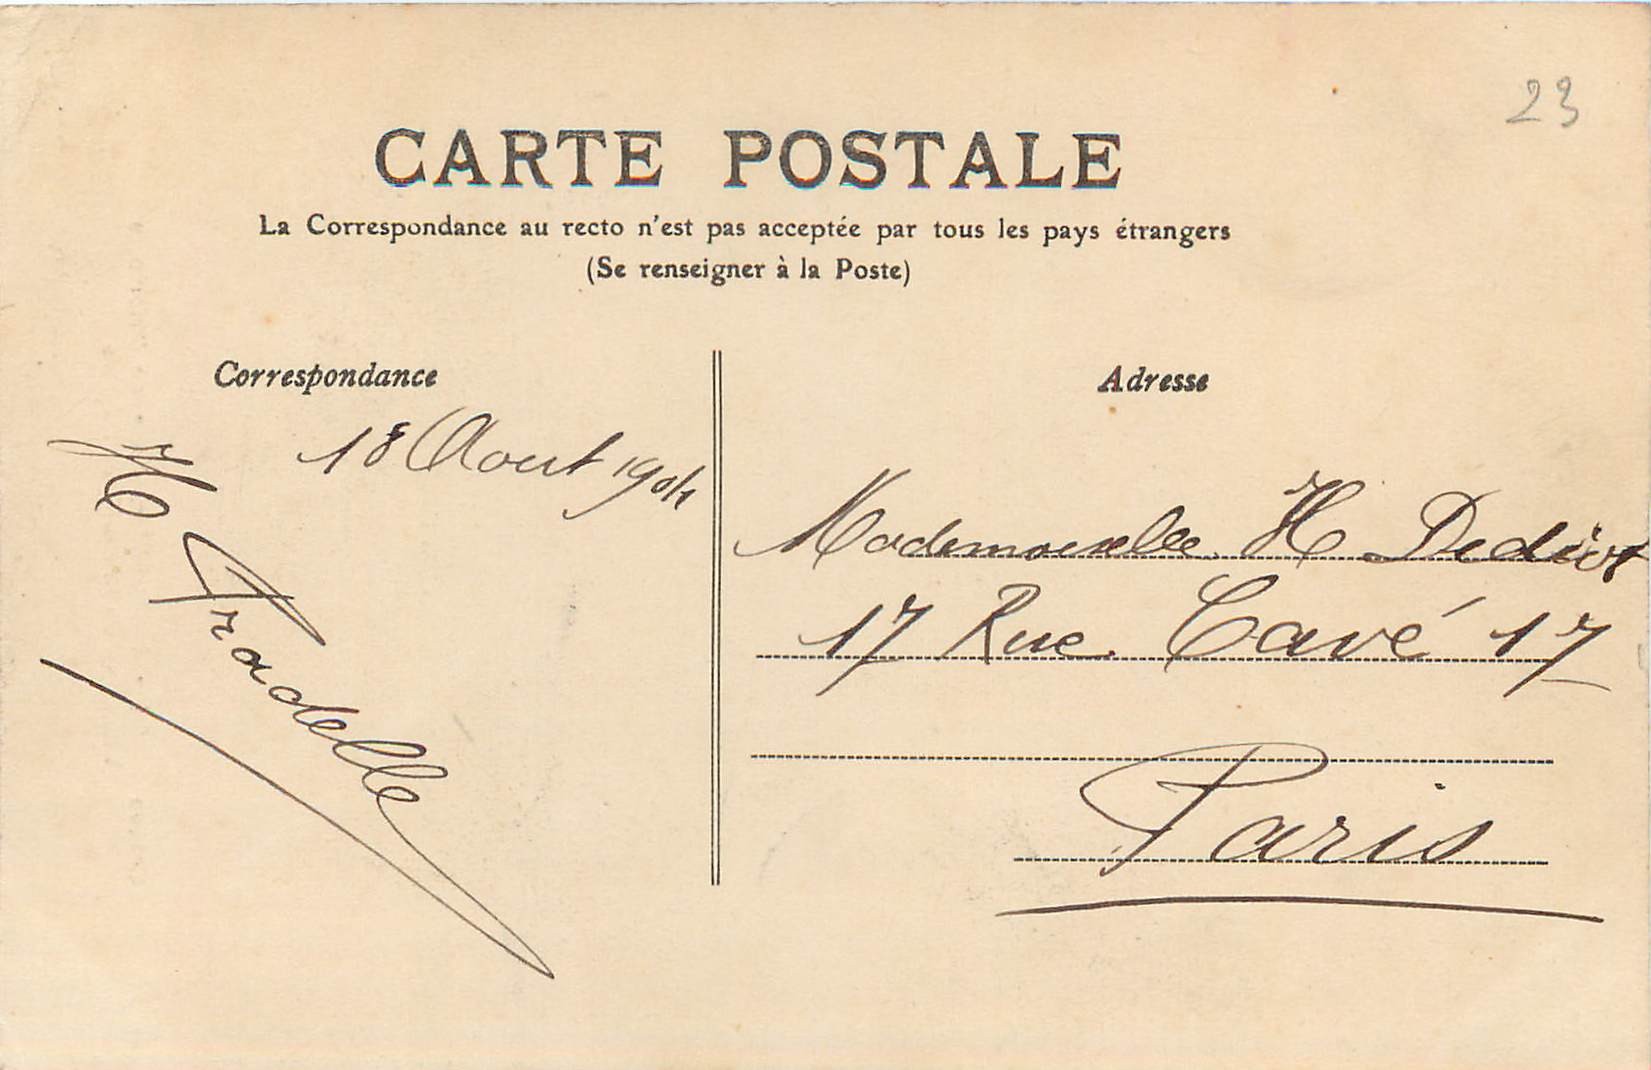 23
CARTE POSTALE
La Correspondance au recto n'est pas acceptée par tous les pays étrangers
(Se renseigner à la Poste)
Correspondance
18 Aout 1904
H Fradelle
Adresse
Mademoiselle H
17 Rue Cavé 17
Paris